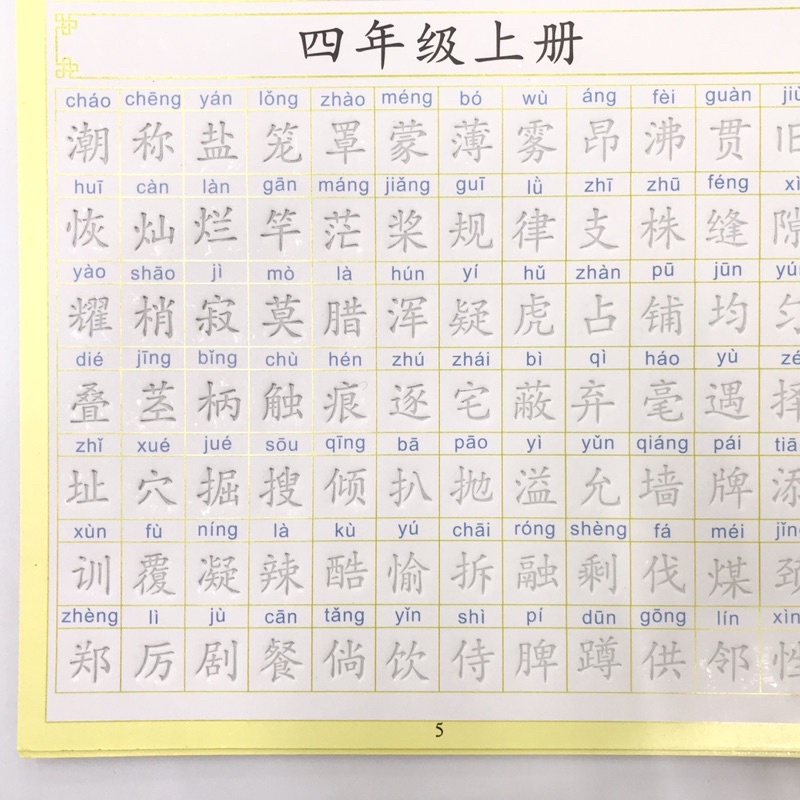 四年级上册
cháo chēng yán lǒng zhào méng bó wù áng fèi guàn
潮 称 盐 笼 罩 蒙 薄 雾 昂 沸 贯 旧
huī càn làn gān máng jiǎng guī lǜ zhī zhū féng
恢 灿 烂 竿 茫 桨 规 律 支 株 缝 隙
yào shāo jì mò là hún yí hǔ zhàn pū jūn
耀 梢 寂 莫 腊 浑 疑 虎 占 铺 均 匀
dié jīng bǐng chù hén zhú zhái bì qì háo yù
叠 茎 柄 触 痕 逐 宅 蔽 弃 毫 遇 择
zhǐ xué jué sōu qīng bā pāo yì yǔn qiáng pái
址 穴 掘 搜 倾 扒 抛 溢 允 墙 牌 添
xùn fù níng là kù yú chāi róng shèng fá méi
训 覆 凝 辣 酷 愉 拆 融 剩 伐 煤
zhèng lì jù cān tǎng yǐn shì pí dūn gōng lín
郑 厉 剧 餐 倘 饮 侍 脾 蹲 供 邻
5